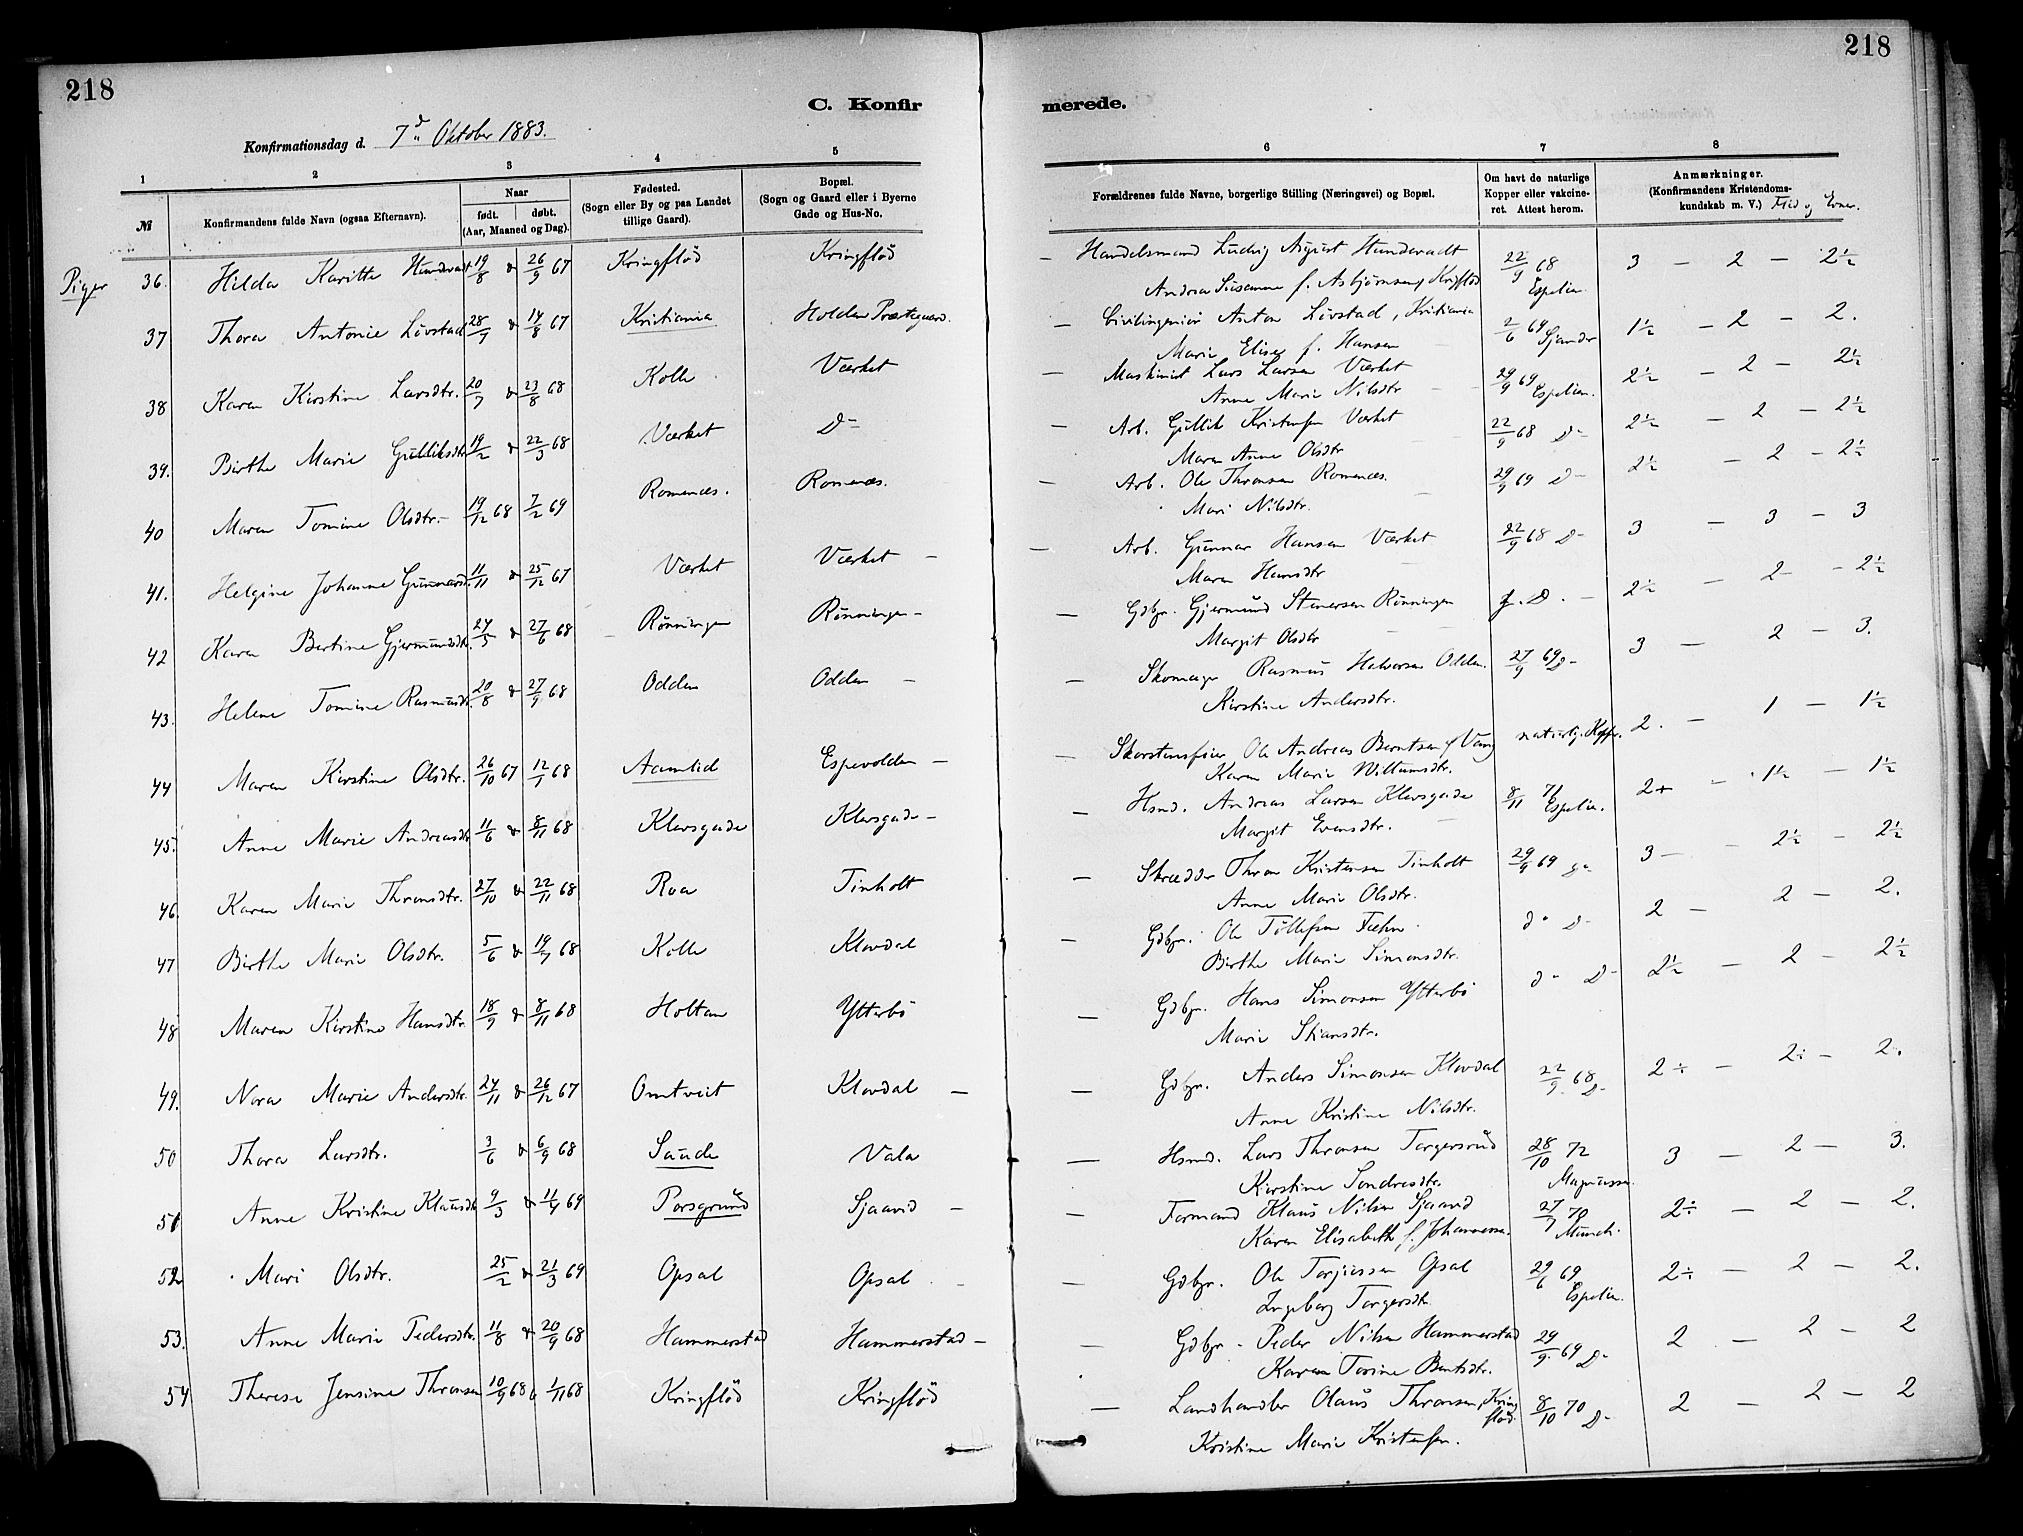 218
218
C. Konfir
merede.
Konfirmationsdag d. 7d Oktober 1883.
1 2 3 4 5 6 7 8
№
Konfirmandens fulde Navn (ogsaa Efternavn).
Naar
født. døbt.
(Aar, Maaned og Dag).
Fødested.
(Sogn eller By og paa Landet
tillige Gaard).
Bopæl.
(Sogn og Gaard eller i Byerne
Gade og Hus-No.
Forældrenes fulde Navne, borgerlige Stilling (Næringsvei) og Bopæl.
Om havt de naturlige
Kopper eller vakcine-
ret. Attest herom.
Anmærkninger.
(Konfirmandens Kristendoms-
kundskab m. V.) Flid og Evner.
Piger
36. Hilda Karitte Hundevadt 19/8 & 26/9 67 Kringflöd Kringflöd — Handelsmand Ludvig August Hundevadt 22/9 68 3 — 2 — 2½
Andrea Susanne f. Asbjörnsen, Espelien.
37 Thora Antonie Lövstad 28/7 & 14/8 67 Kristiania Holden Præstegaard. — Civilingeniör Anton Lövstad, Kristiania 2/6 69 1½ — 2 — 2.
Marie Elise f. Hansen
38 Karen Kirstine Larsdtr. 20/7 & 23/8 68 Kolle Værket — Maskinist Lars Larsen Værket 29/9 69 Espelien. 2½ — 2 — 2½
Anne Marie Nilsdtr
39. Birthe Marie Gulliksdtr 19/2 & 22/3 68 Værket D- — Arb. Gullik Kristensen Værket 22/9 68 D- 2½ — 2 — 2½
Maren Anne Olsdtr
40 Maren Tomine Olsdtr. 19/12 68 7/2 69 Romenæs. Romenæs. — Arb. Ole Thronsen Romenæs. 29/9 69 D- 2½ — 2 — 2½
Mari Nilsdtr.
41. Helgine Johanne Gunnarsd. 11/11 & 25/12 67 Værket Værket — Arb. Gunnar Hansen Værket 22/9 68 D- 3 — 3 — 3
Maren Hansdtr
42 Karen Bertine Gjermundsdtr. 24/5 & 27/6 68 Rønningen Rønningen — Gdbgr. Gjermund Stenersen Rønningen D. 2½ — 2 — 2½
Margit Olsdtr
43. Helene Tomine Rasmusdtr. 20/8 & 27/9 68 Odden Odden — Skomager Rasmus Halvorsen Odden. 27/9 69 D- 3 — 2 — 3.
Kirstine Andersdtr.
44 Maren Kirstine Olsdtr. 26/10 67 12/1 68 Aamlid Espevolden — Skorstensfeier Ole Andreas Berntsen naturlig. Kopper. 2. — 1 — 1½
Karen Marie Willumsdtr.
45. Anne Marie Andreasdtr 11/6 & 8/11 68 Klevsgade Klevsgade — Hsmd. Andreas Larsen Klevsgade 8/11 71 Espelien. 2+ — 1½ — 1½
Margit Evensdtr.
46. Karen Marie Thronsdtr. 27/10 & 22/11 68 Roa Tinholt — Skrædder Thron Kristensen Tinholt 29/9 69 3 — 2½ — 2½
Anne Marie Olsdtr.
47 Birthe Marie Olsdtr. 5/6 & 19/7 68 Kolle Klovdal — Gdbgr. Ole Tollefsen Fæhn d° D- 2 — 2 — 2.
Birthe Marie Simonsdtr.
48 Maren Kirstine Hansdtr 18/9 & 8/11 68 Holtan Ytterbö — Gdbgr. Hans Simonsen Ytterbö d° D- 2½ — 2 — 2½
Marie
49. Nora Marie Andersdtr. 24/11 & 26/12 67 Omtveit Klovdal — Gdbgr. Anders Simonsen Klovdal 22/9 68 D- 2÷ — 2÷ — 2.
Anne Kristine Nilsdtr.
50 Thora Larsdtr. 3/6 & 6/9 68 Saude Vala — Hsmd. Lars Thronsen Torgersrud 28/10 72 3 — 2 — 3.
Kirstine Sondresdtr. Magnussen
51 Anne Kristine Klausdtr 9/3 & 11/4 69 Porsgrund Sjaavid — Formand Klaus Nilsen Sjaavid 27/7 70 Munch. 2÷ — 2 — 2.
Karen Elisabeth f. Johannessen.
52 Mari Olsdtr. 25/2 & 21/3 69 Opsal Opsal — Gdbgr. Ole Torjussen Opsal 29/6 69 Espelien. 2÷ — 2 — 2.
Ingeborg Torgersdtr
53. Anne Marie Pedersdtr 11/8 & 20/9 68 Hammerstad Hammerstad — Gdbgr. Peder Nilsen Hammerstad 29/9 69 D- 2 — 2 — 2
Karen Torine Berntsdtr.
54 Therese Jensine Thronsen 10/9 68 & 1/11 68 Kringflöd Kringflöd — Landhandler Olaus Thronsen, Kringflöd. 8/10 70 D- 2 — 2 — 2
Kristine Marie Kristensen.